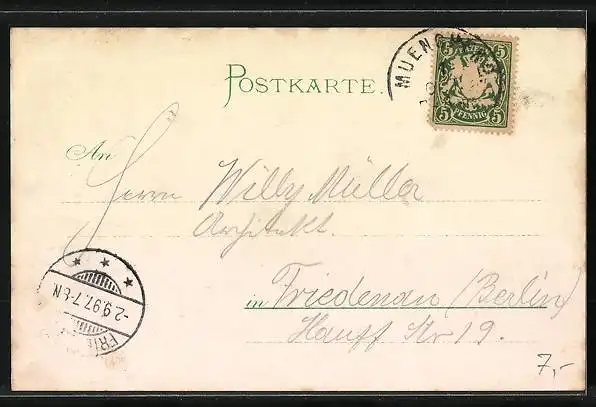 POSTKARTE.
MUENCH
5 5
PFENNIG
5 5
An
Herrn Willy Müller
Architekt.
in Friedenau (Berlin)
Hauff Str 19.
-2.9.97.7-8N.
FRIE
7,-